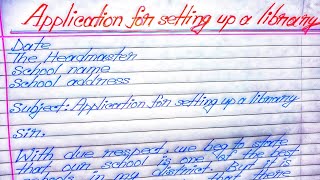 Application for setting up a library
Date
The Headmaster
School name
School address
Subject: Application for setting up a library
Sir,
With due respect, we beg to state
that, our school is one of the best
schools in my district. But it is
that there